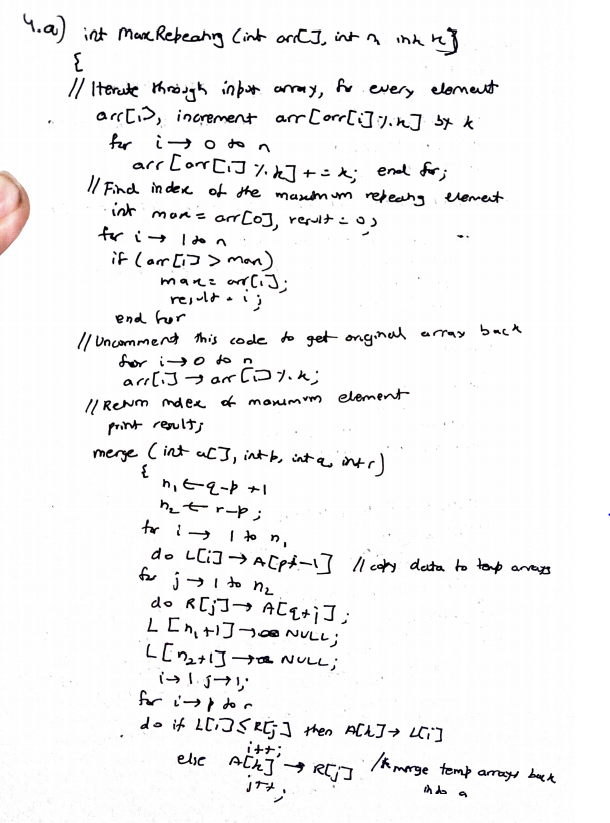 4.a) int MaxRepeating (int arr[], int n, int k)
{
// Iterate through input array, for every element
arr[i], increment arr[arr[i]%k] by k
for i → 0 to n
arr[arr[i]%k] += k; end for;
// Find index of the maximum repeating element
int max = arr[0], result = 0;
for i → 1 to n
if (arr[i] > max)
max = arr[i];
result = i;
end for
// Uncomment this code to get original array back
for i → 0 to n
arr[i] → arr[i]%k;
// Return index of maximum element
print result;
merge (int a[], int p, int q, int r)
{
n₁ ← q-p +1
n₂ ← r-p;
for i → 1 to n₁
do L[i] → A[p+i-1] // copy data to temp arrays
for j → 1 to n₂
do R[j] → A[q+j];
L[n₁+1] → NULL;
L[n₂+1] → NULL;
i→1 j→1;
for i→p to r
do if L[i] ≤ R[j] then A[k] → L[i]
i++;
else A[k] → R[j] /* merge temp arrays back
j++; into a